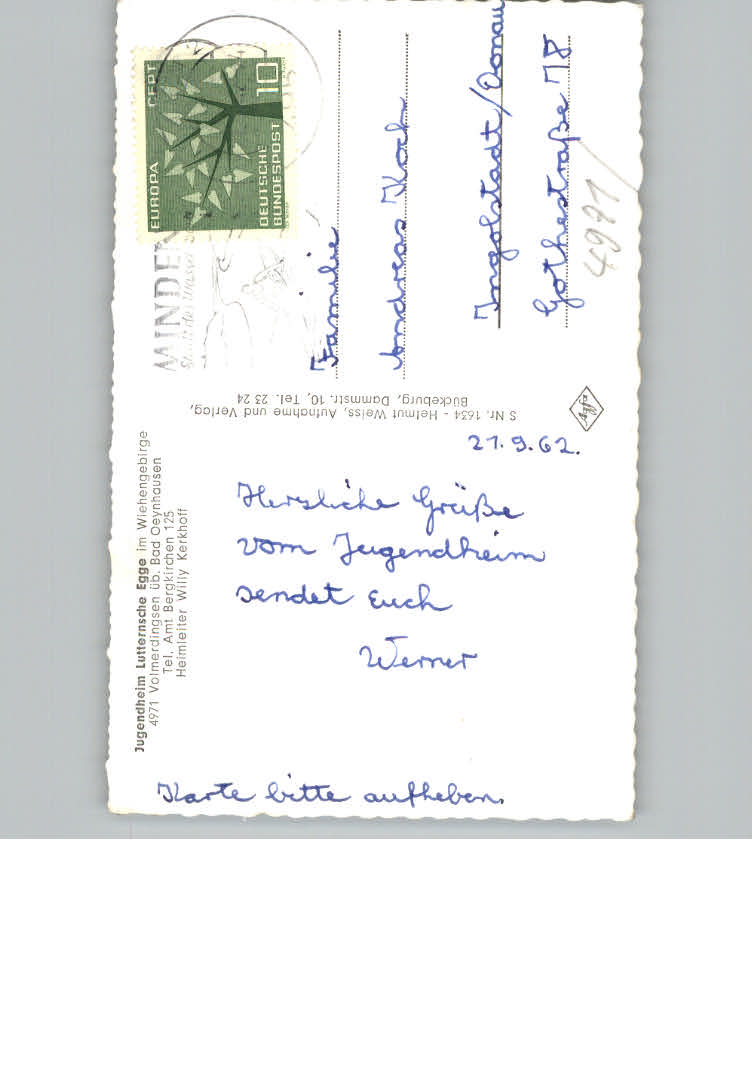 Jugendheim Lutternsche Egge im Wiehengebirge
4971 Volmerdingsen üb. Bad Oeynhausen
Tel. Amt Bergkirchen 125
Heimleiter Willy Kerkhoff
21.9.62.
Herzliche Grüße
vom Jugendheim
sendet Euch
Werner
Karte bitte aufheben.
S Nr. 1634 - Helmut Weiss, Aufnahme und Verlag,
Bückeburg, Dammstr. 10, Tel. 23 24
Agfa
EUROPA CEPT
10
DEUTSCHE
BUNDESPOST
MINDEN
Familie
Andreas Koch
Ingolstadt/Donau
Gothestraße 78
4971